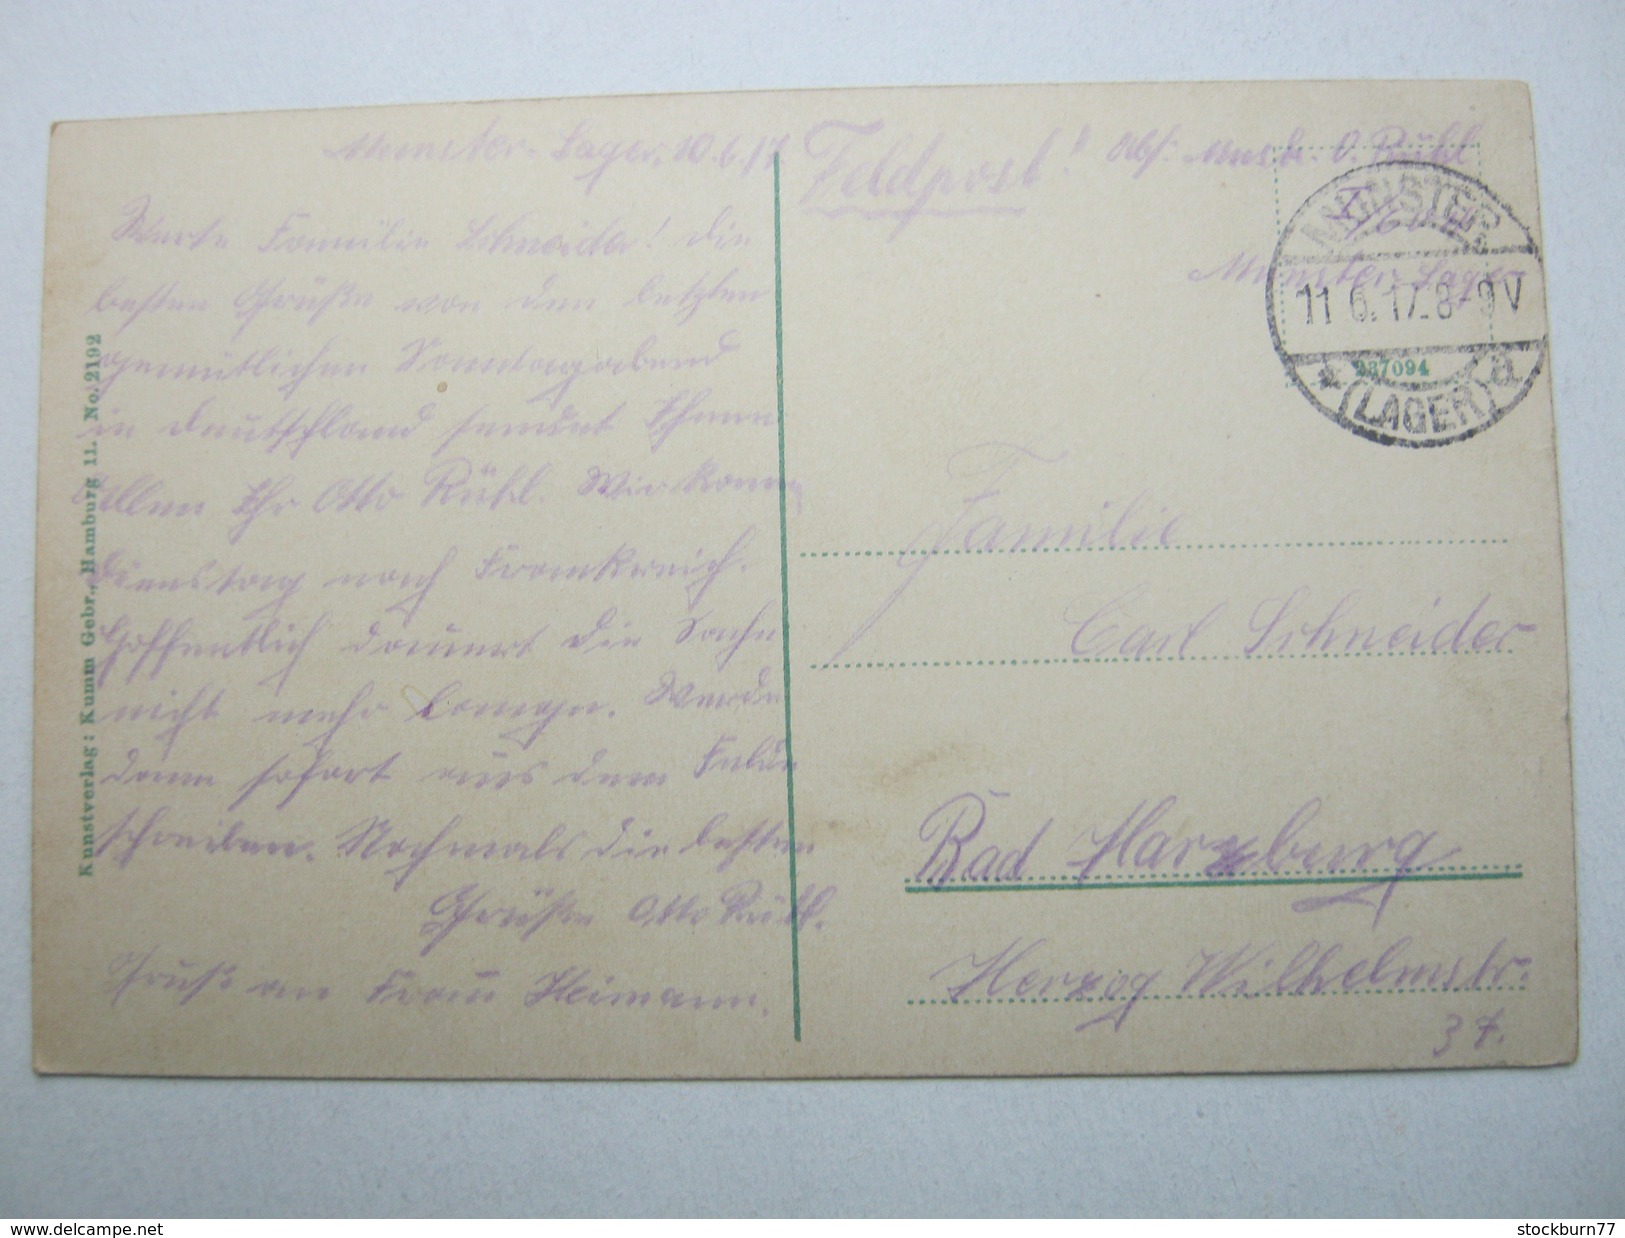 Munster-Lager, 10.6.17
Werte Familie Schneider! Die
besten Grüße von dem letzten
gemütlichen Sonntagabend
in Deutschland sendet Ihnen
allen Ihr Otto Rühl. Wir kommen
Dienstag nach Frankreich.
Hoffentlich dauert die Sache
nicht mehr lange. Werde
dann sofort aus dem Felde
schreiben. Nochmals die besten
Grüße Otto Rühl.
Gruß an Frau Heimann.
Kunstverlag: Kumm Gebr., Hamburg 11. No. 2192
Feldpost!
Abs: Musk. O. Rühl
Munster-Lager
MUNSTER
11.6.17.8-9V
* (LAGER) a
237094
Familie
Carl Schneider
Bad Harzburg
Herzog Wilhelmstr.
37.
www.delcampe.net
stockburn77